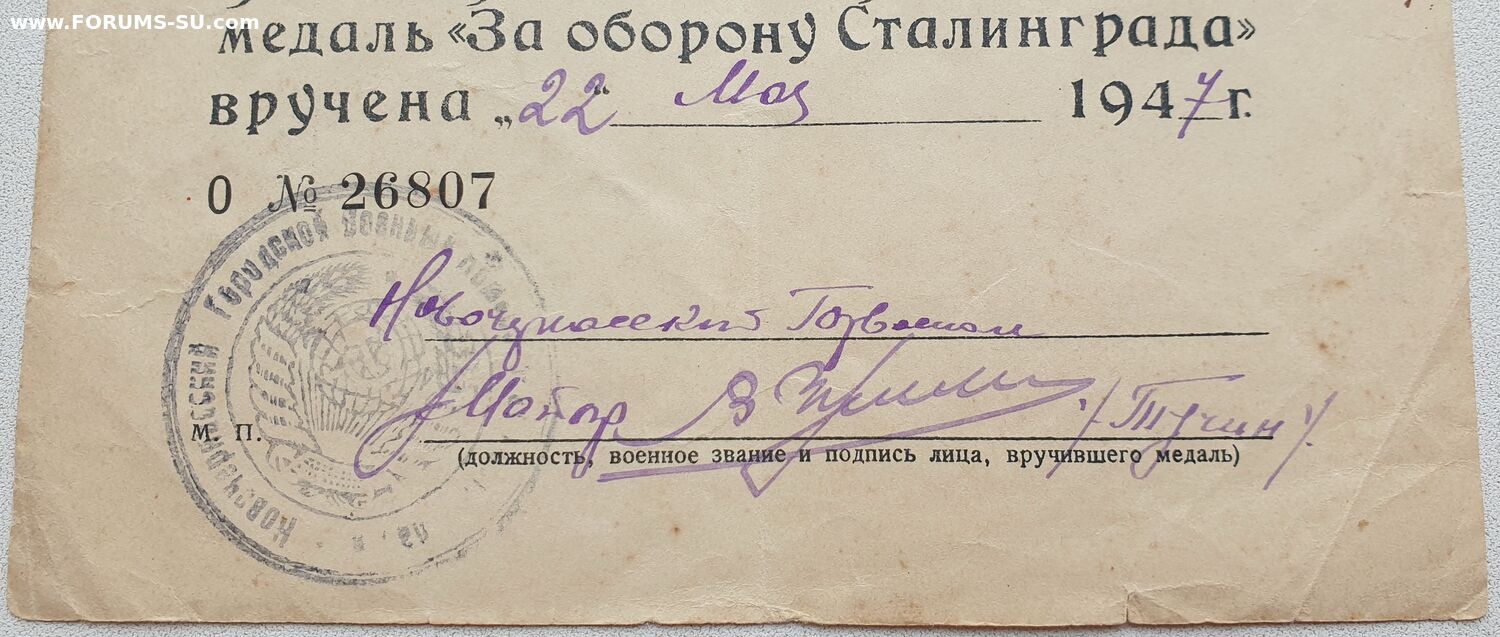 www.FORUMS-SU.com
медаль «За оборону Сталинграда»
вручена „22" Мая 1947 г.
О № 26807
Новочеркасский Горвоенком
Майор /Тучин/
М. П.
(должность, военное звание и подпись лица, вручившего медаль)
Новочеркасский Городской Военный